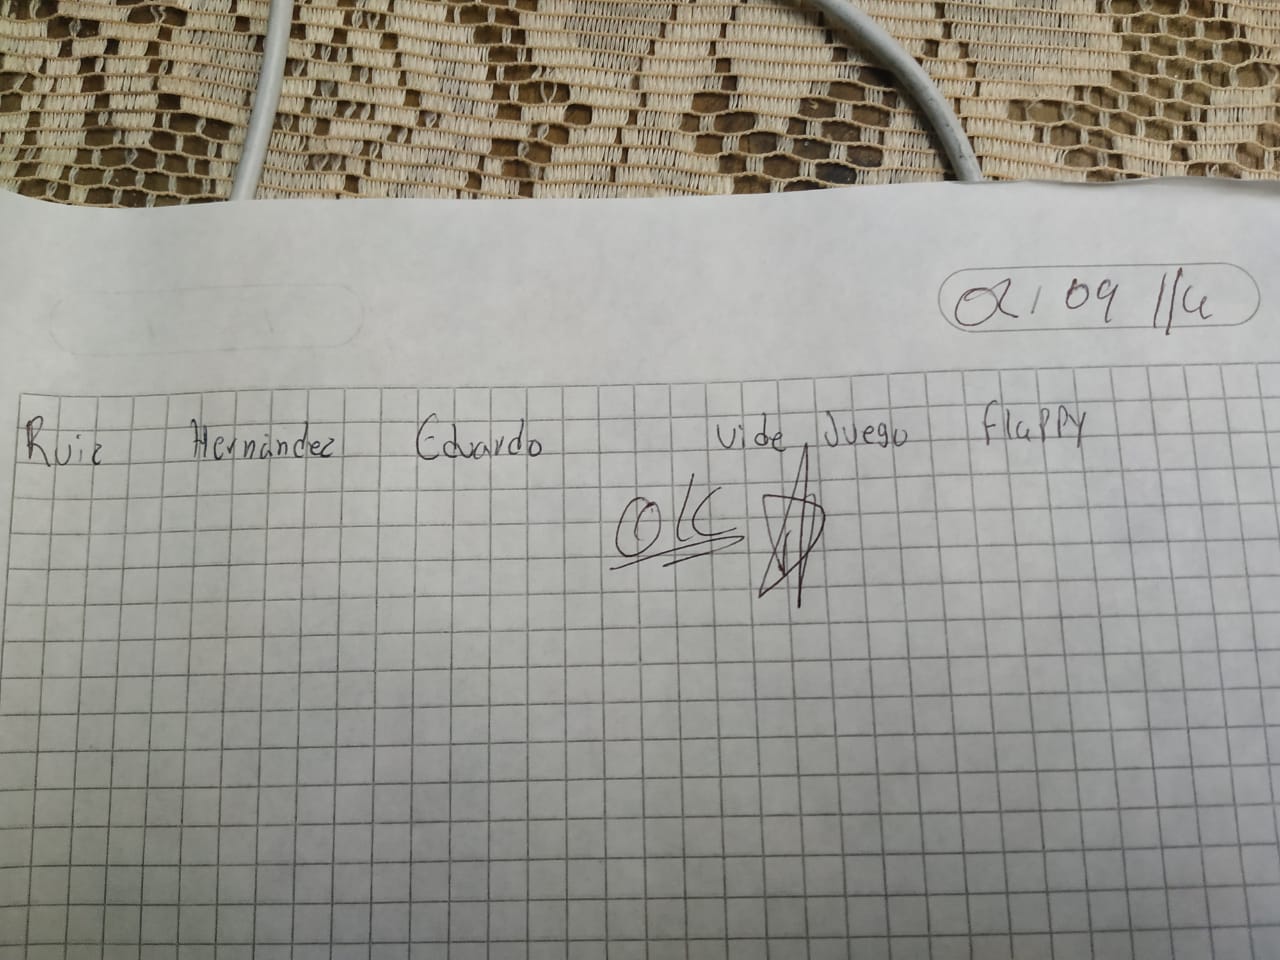 Ruiz Hernández Eduardo Vide Juego flappy
OK